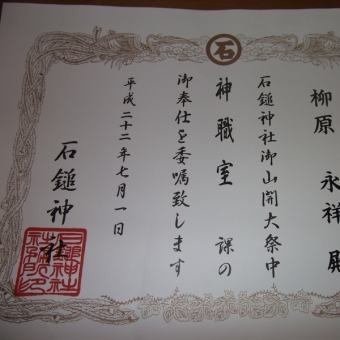 石
柳原 永祥 殿
石鎚神社御山開大祭中
神職室 課の
御奉仕を委嘱致します
平成二十二年七月一日
石鎚神社